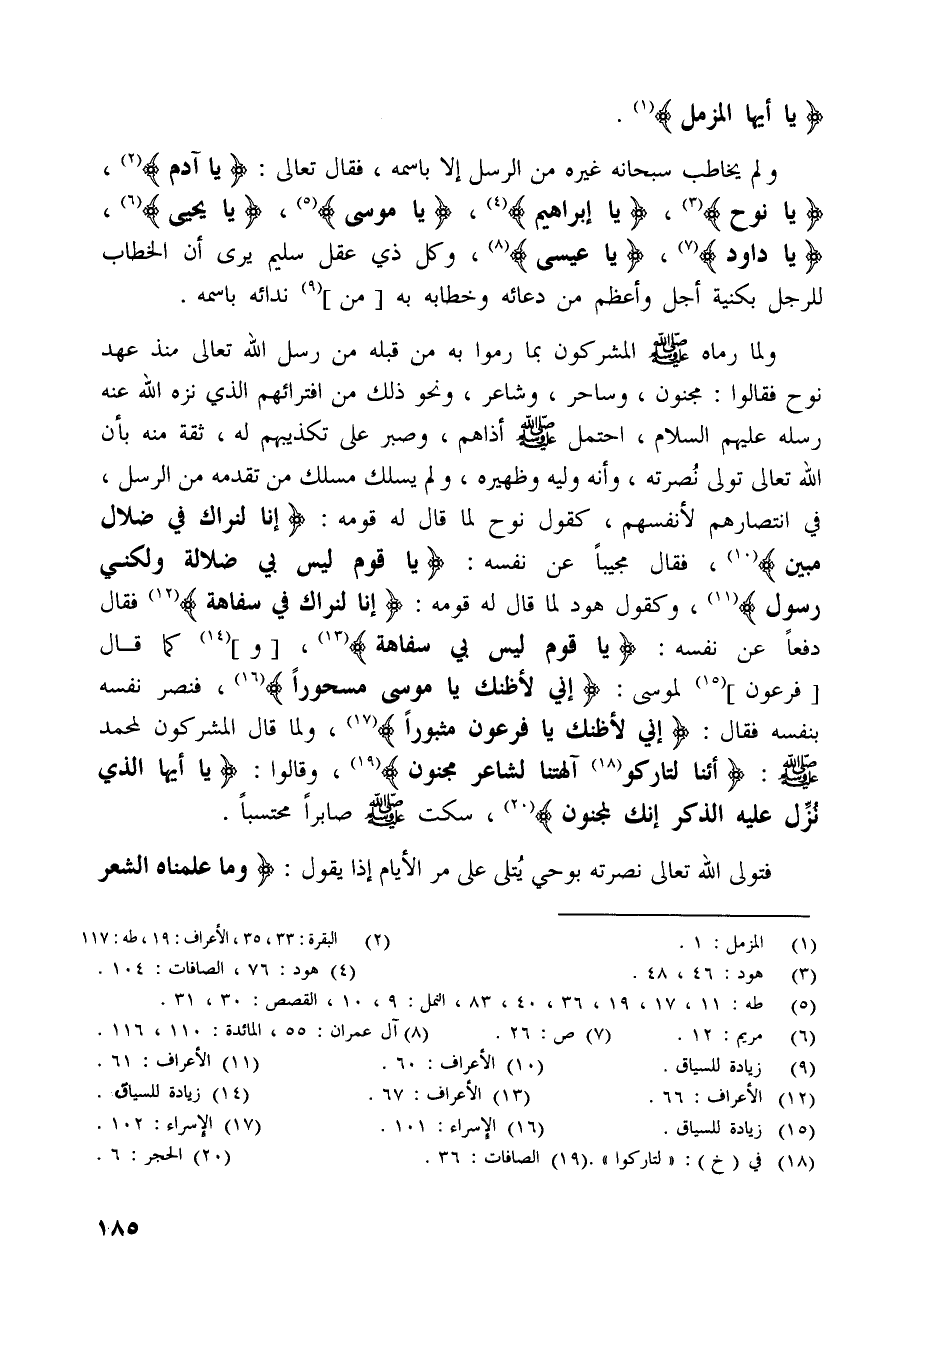 ﴿ يا أيها المزمل ﴾(١) .
و لم يخاطب سبحانه غيره من الرسل إلا باسمه ، فقال تعالى : ﴿ يا آدم ﴾(٢) ،
﴿ يا نوح ﴾(٣) ، ﴿ يا إبراهيم ﴾(٤) ، ﴿ يا موسى ﴾(٥) ، ﴿ يا يحيى ﴾(٦) ،
﴿ يا داود ﴾(٧) ، ﴿ يا عيسى ﴾(٨) ، وكل ذي عقل سليم يرى أن الخطاب
للرجل بكنية أجل وأعظم من دعائه وخطابه به [ من ](٩) ندائه باسمه .
ولما رماه ﷺ المشركون بما رموا به من قبله من رسل الله تعالى منذ عهد
نوح فقالوا : مجنون ، وساحر ، وشاعر ، ونحو ذلك من افترائهم الذي نزه الله عنه
رسله عليهم السلام ، احتمل ﷺ أذاهم ، وصبر على تكذيبهم له ، ثقة منه بأن
الله تعالى تولى نُصرته ، وأنه وليه وظهيره ، و لم يسلك مسلك من تقدمه من الرسل ،
في انتصارهم لأنفسهم ، كقول نوح لما قال له قومه : ﴿ إنا لنراك في ضلال
مبين ﴾(١٠) ، فقال مجيباً عن نفسه : ﴿ يا قوم ليس بي ضلالة ولكنـي
رسول ﴾(١١) ، وكقول هود لما قال له قومه : ﴿ إنا لنراك في سفاهة ﴾(١٢) فقال
دفعاً عن نفسه : ﴿ يا قوم ليس بي سفاهة ﴾(١٣) ، [ و ](١٤) كما قــال
[ فرعون ](١٥) لموسى : ﴿ إني لأظنك يا موسى مسحوراً ﴾(١٦) ، فنصر نفسه
بنفسه فقال : ﴿ إني لأظنك يا فرعون مثبوراً ﴾(١٧) ، ولما قال المشركون لمحمد
ﷺ : ﴿ أئنا لتاركو(١٨) آلهتنا لشاعر مجنون ﴾(١٩) ، وقالوا : ﴿ يا أيها الذي
نُزِّل عليه الذكر إنك لمجنون ﴾(٢٠) ، سكت ﷺ صابراً محتسباً .
فتولى الله تعالى نصرته بوحي يُتلى على مر الأيام إذا يقول : ﴿ وما علمناه الشعر
(١) المزمل : ١ . (٢) البقرة : ٣٣ ، ٣٥ ، الأعراف : ١٩ ، طه : ١١٧
(٣) هود : ٤٦ ، ٤٨ . (٤) هود : ٧٦ ، الصافات : ١٠٤ .
(٥) طه : ١١ ، ١٧ ، ١٩ ، ٣٦ ، ٤٠ ، ٨٣ ، النمل : ٩ ، ١٠ ، القصص : ٣٠ ، ٣١ .
(٦) مريم : ١٢ . (٧) ص : ٢٦ . (٨) آل عمران : ٥٥ ، المائدة : ١١٠ ، ١١٦ .
(٩) زيادة للسياق . (١٠) الأعراف : ٦٠ . (١١) الأعراف : ٦١ .
(١٢) الأعراف : ٦٦ . (١٣) الأعراف : ٦٧ . (١٤) زيادة للسياق .
(١٥) زيادة للسياق . (١٦) الإسراء : ١٠١ . (١٧) الإسراء : ١٠٢ .
(١٨) في ( خ ) : « لتاركوا » . (١٩) الصافات : ٣٦ . (٢٠) الحجر : ٦ .
١٨٥